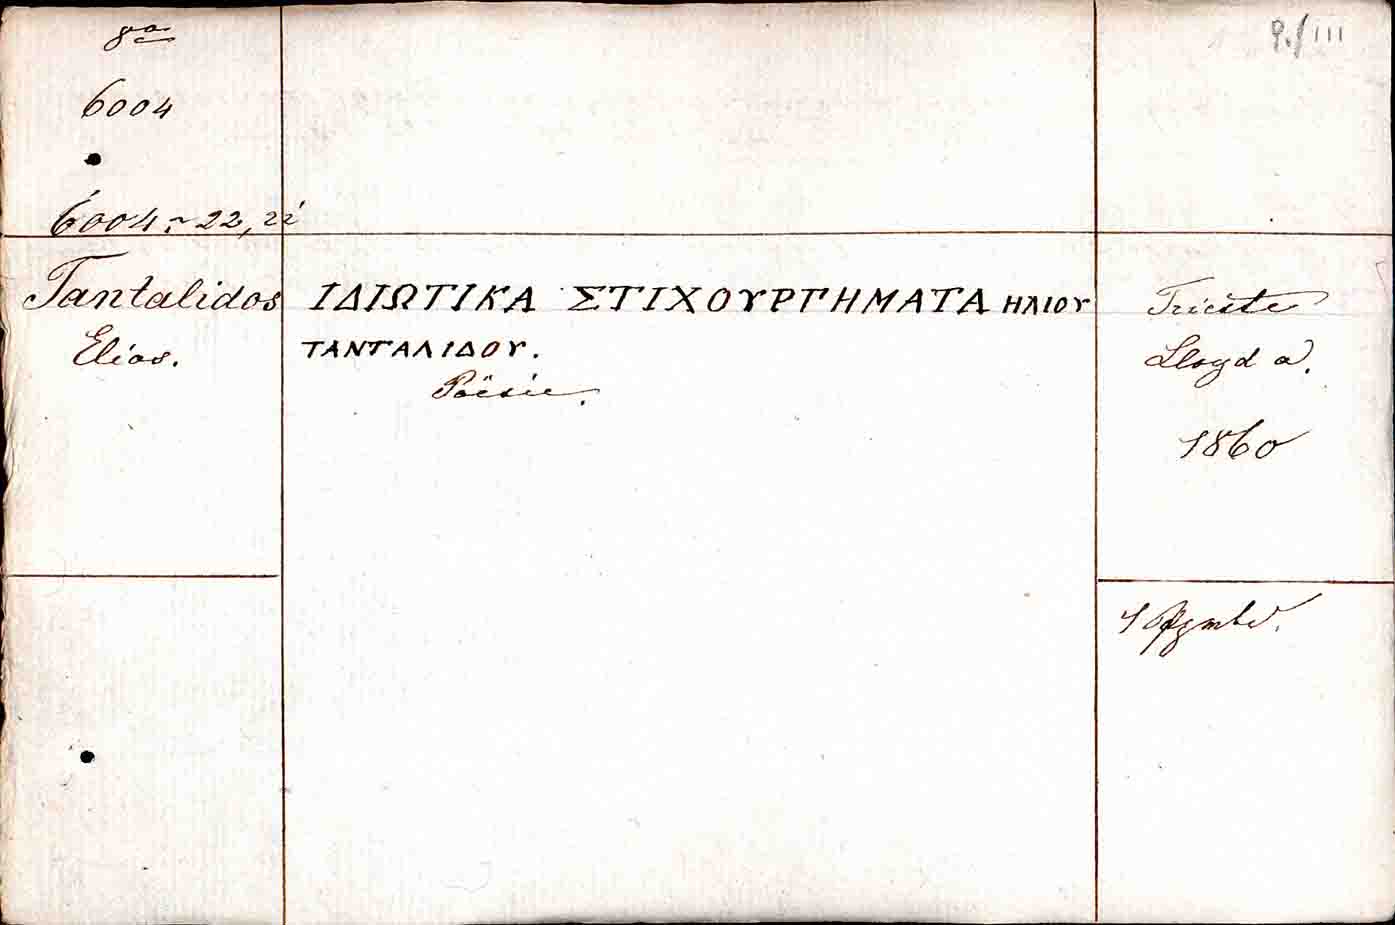 8o
9./III
6004
6004.~22,22
Tantalidos
Elias.
ΙΔΙΩΤΙΚΑ ΣΤΙΧΟΥΡΓΗΜΑΤΑ ΗΛΙΟΥ
ΤΑΝΤΑΛΙΔΟΥ.
Poësie.
Trieste
Lloyd a.
1860
1